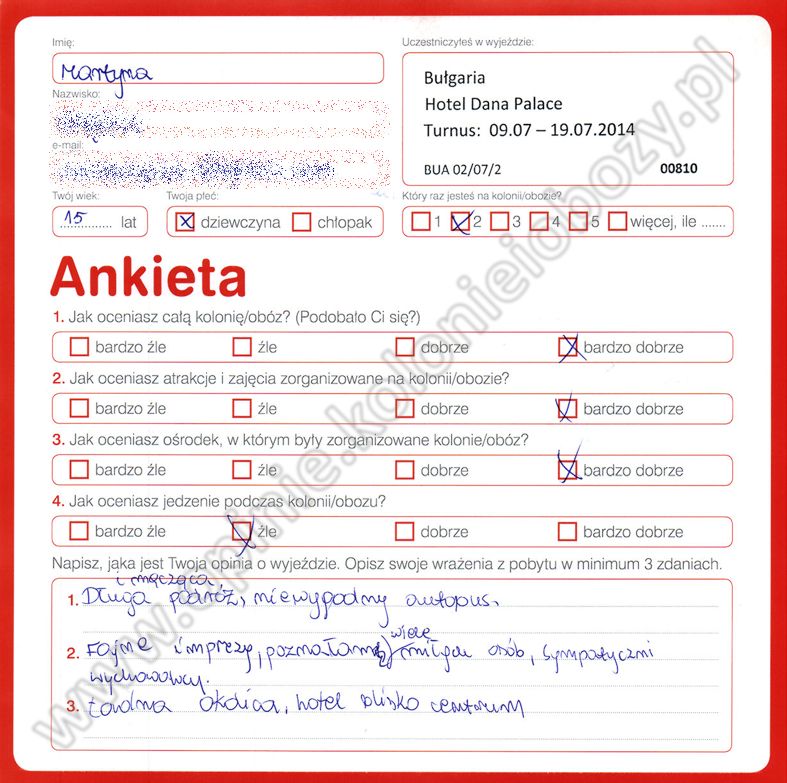 Imię:
Uczestniczyłeś w wyjeździe:
Martyna
Bułgaria
Hotel Dana Palace
Turnus: 09.07 – 19.07.2014
BUA 02/07/2
00810
Nazwisko:
e-mail:
Twój wiek:
Twoja płeć:
Który raz jesteś na kolonii/obozie?
15 lat
dziewczyna
chłopak
1 2 3 4 5 więcej, ile .......
Ankieta
1. Jak oceniasz całą kolonię/obóz? (Podobało Ci się?)
bardzo źle źle dobrze bardzo dobrze
2. Jak oceniasz atrakcje i zajęcia zorganizowane na kolonii/obozie?
bardzo źle źle dobrze bardzo dobrze
3. Jak oceniasz ośrodek, w którym były zorganizowane kolonie/obóz?
bardzo źle źle dobrze bardzo dobrze
4. Jak oceniasz jedzenie podczas kolonii/obozu?
bardzo źle źle dobrze bardzo dobrze
Napisz, jaka jest Twoja opinia o wyjeździe. Opisz swoje wrażenia z pobytu w minimum 3 zdaniach.
i męcząca,
1. Długa podróż, niewygodny autopus.
wiele
2. Fajne imprezy, poznałam miłych osób, sympatyczni
wychowawcy.
3. Ładna okolica, hotel blisko centrum
www.opinie.kolonieiobozy.pl